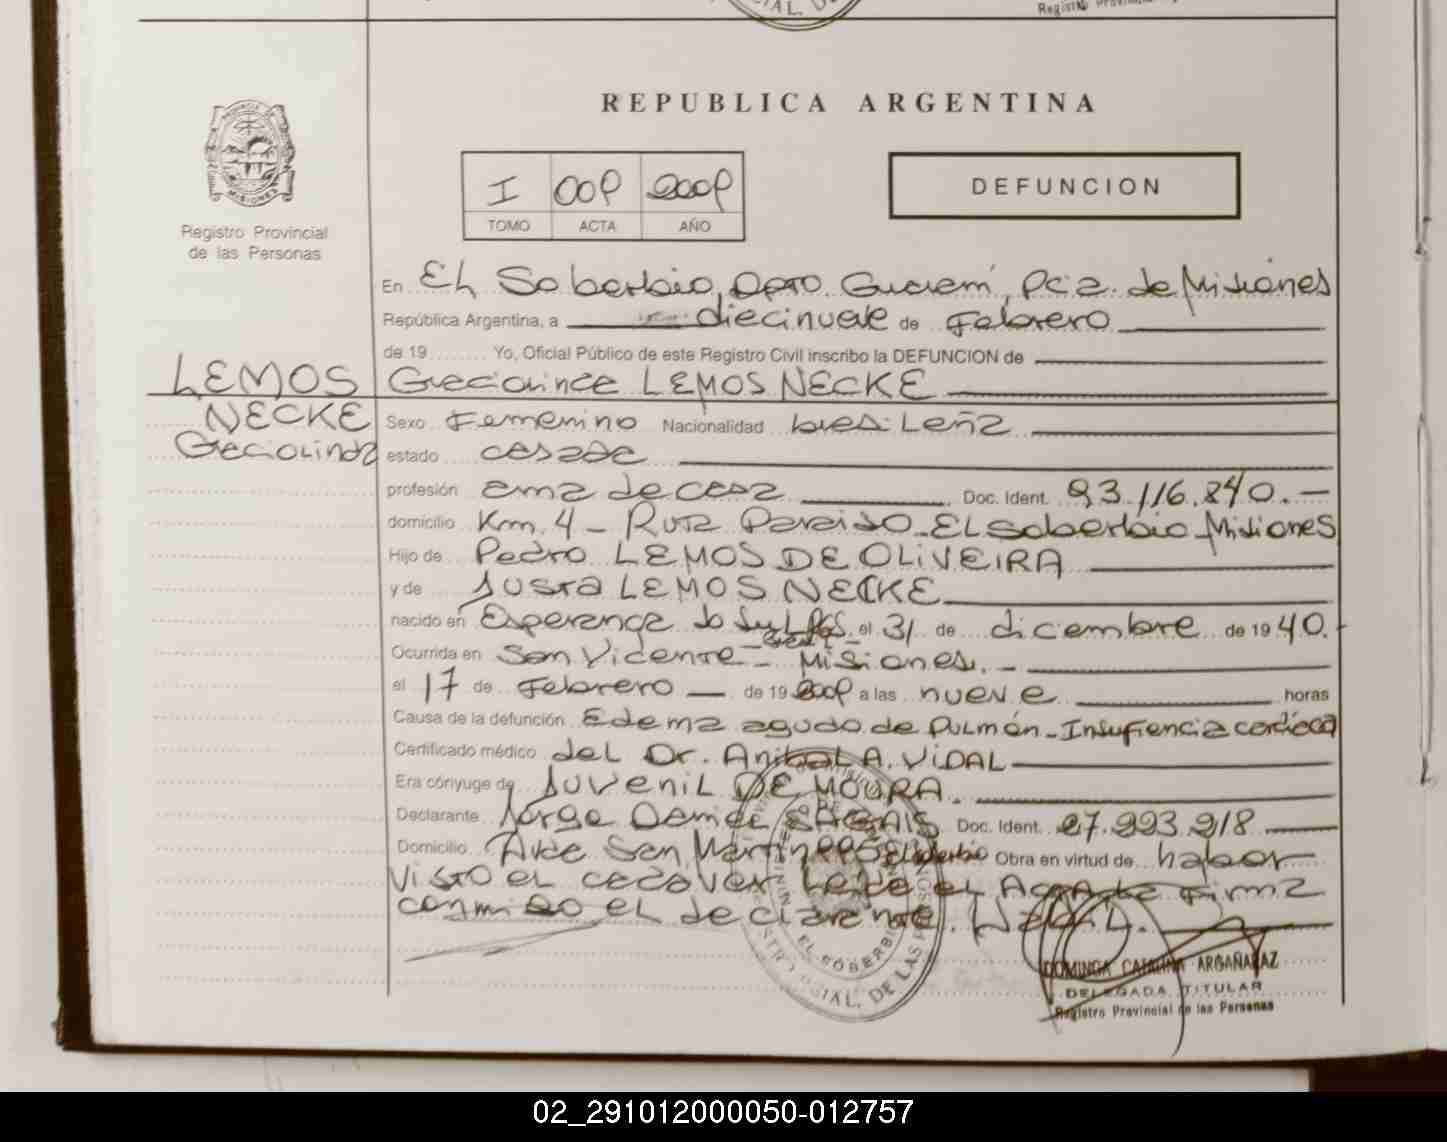 REPUBLICA ARGENTINA
I 009 2009
TOMO ACTA AÑO
DEFUNCION
Registro Provincial
de las Personas
En El Soberbio, Dpto. Guaraní, Pcia. de Misiones
República Argentina, a diecinueve de Febrero
de 19 Yo, Oficial Público de este Registro Civil inscribo la DEFUNCION de
LEMOS Graciolinda LEMOS NECKE
NECKE Sexo Femenino Nacionalidad brasileña
Graciolinda estado casada
profesión ama de casa Doc. Ident. 93.116.840.-
domicilio Km. 4 - Ruta Paraiso - El Soberbio Misiones
Hijo de Pedro LEMOS DE OLIVEIRA
y de Justa LEMOS NECKE
nacido en Esperança do Sul el 31 de diciembre de 1940.
Ocurrida en San Vicente - Misiones. -
el 17 de Febrero de 19 2009 a las nueve horas
Causa de la defunción Edema agudo de Pulmón - Insufiencia cardiaca
Certificado médico del Dr. Anibal A. VIDAL
Era cónyuge de Juvenil DE MOURA.
Declarante Jorge Doc. Ident. 27.993.918
Domicilio Avda San Martin El Soberbio Obra en virtud de haber
visto el cadaver Leida el Acta la Firma
conmigo el declarante.
EL SOBERBIO
DOMINGA CATALINA ARGAÑARAZ
DELEGADA TITULAR
Registro Provincial de las Personas
02_291012000050-012757